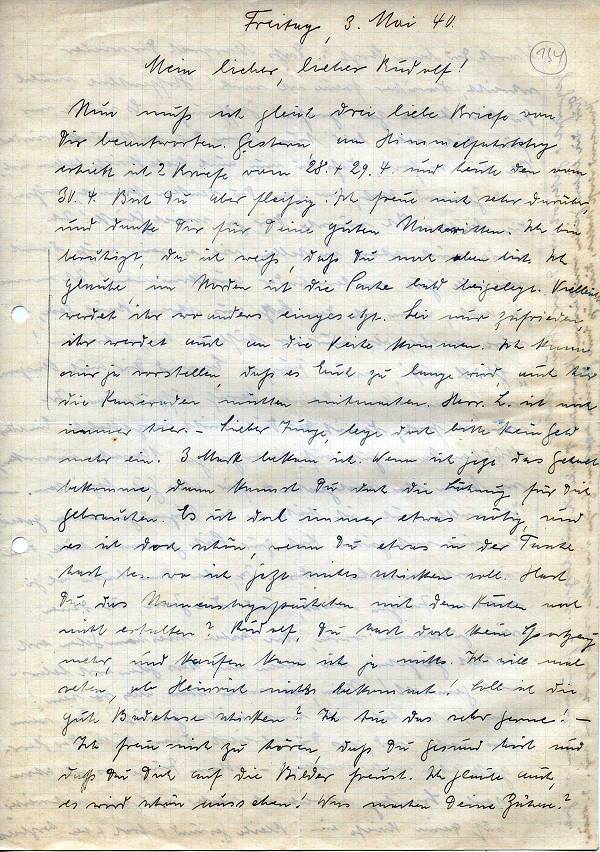 Freitag, 3. Mai 40.
134
Mein lieber, lieber Rudolf!
Nun muß ich gleich drei liebe Briefe von
Dir beantworten. Gestern, am Himmelfahrtstag
erhielt ich 2 Briefe vom 28. + 29.4. und heute den vom
30.4. Bist Du aber fleißig. Ich freue mich sehr darüber,
und danke Dir für Deine guten Nachrichten. Ich bin
beruhigt, da ich weiß, daß Du noch oben bist. Ich
glaube im Norden ist die Sache bald beigelegt. Vielleicht
werdet ihr wo anders eingesetzt. Sei nur zufrieden,
ihr werdet auch an die Reihe kommen. Ich kann
mir ja vorstellen, daß es Euch zu lange wird, auch hier
die Kameraden möchten mitmachen. Herr. L. ist noch
immer hier. – Lieber Junge, lege doch bitte kein Geld
mehr ein. 3 Mark bekam ich. Wenn ich jetzt das Gehalt
bekomme, dann kannst Du doch die Löhnung für Dich
gebrauchen. Es ist doch immer etwas nötig, und
es ist doch schön, wenn Du etwas in der Tasche
hast, bes. wo ich jetzt nichts schicken soll. Hast
Du das Namenstagspäckchen mit dem Kuchen noch
nicht erhalten? Rudolf, Du hast doch kein
mehr, und kaufen kann ich ja nichts. Ich will mal
sehen, ob Heinrich nichts bekommt! Soll ich die
gute Badehose schicken? Ich tue das sehr gerne! –
Ich freue mich zu hören, daß Du gesund bist und
daß Du Dich auf die Bilder freust. Ich glaube auch,
es wird schön aussehen! Was machen Deine Zähne?